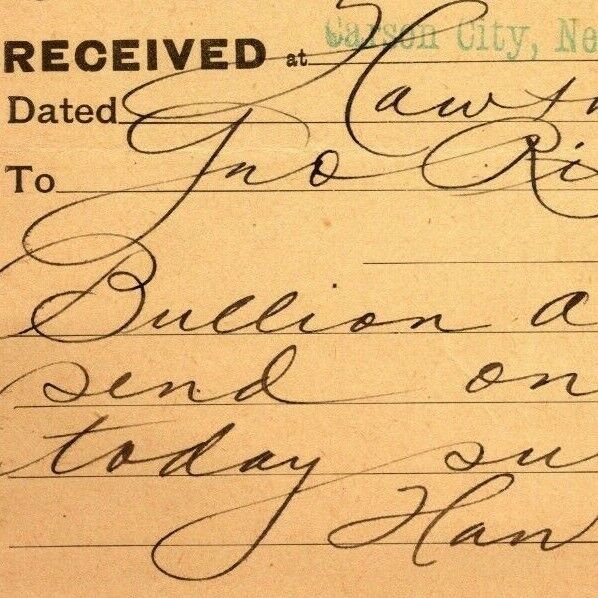 RECEIVED at Carson City, Ne
Dated Hawth
To Jno Ri
Bullion a
send on
today su
Haw